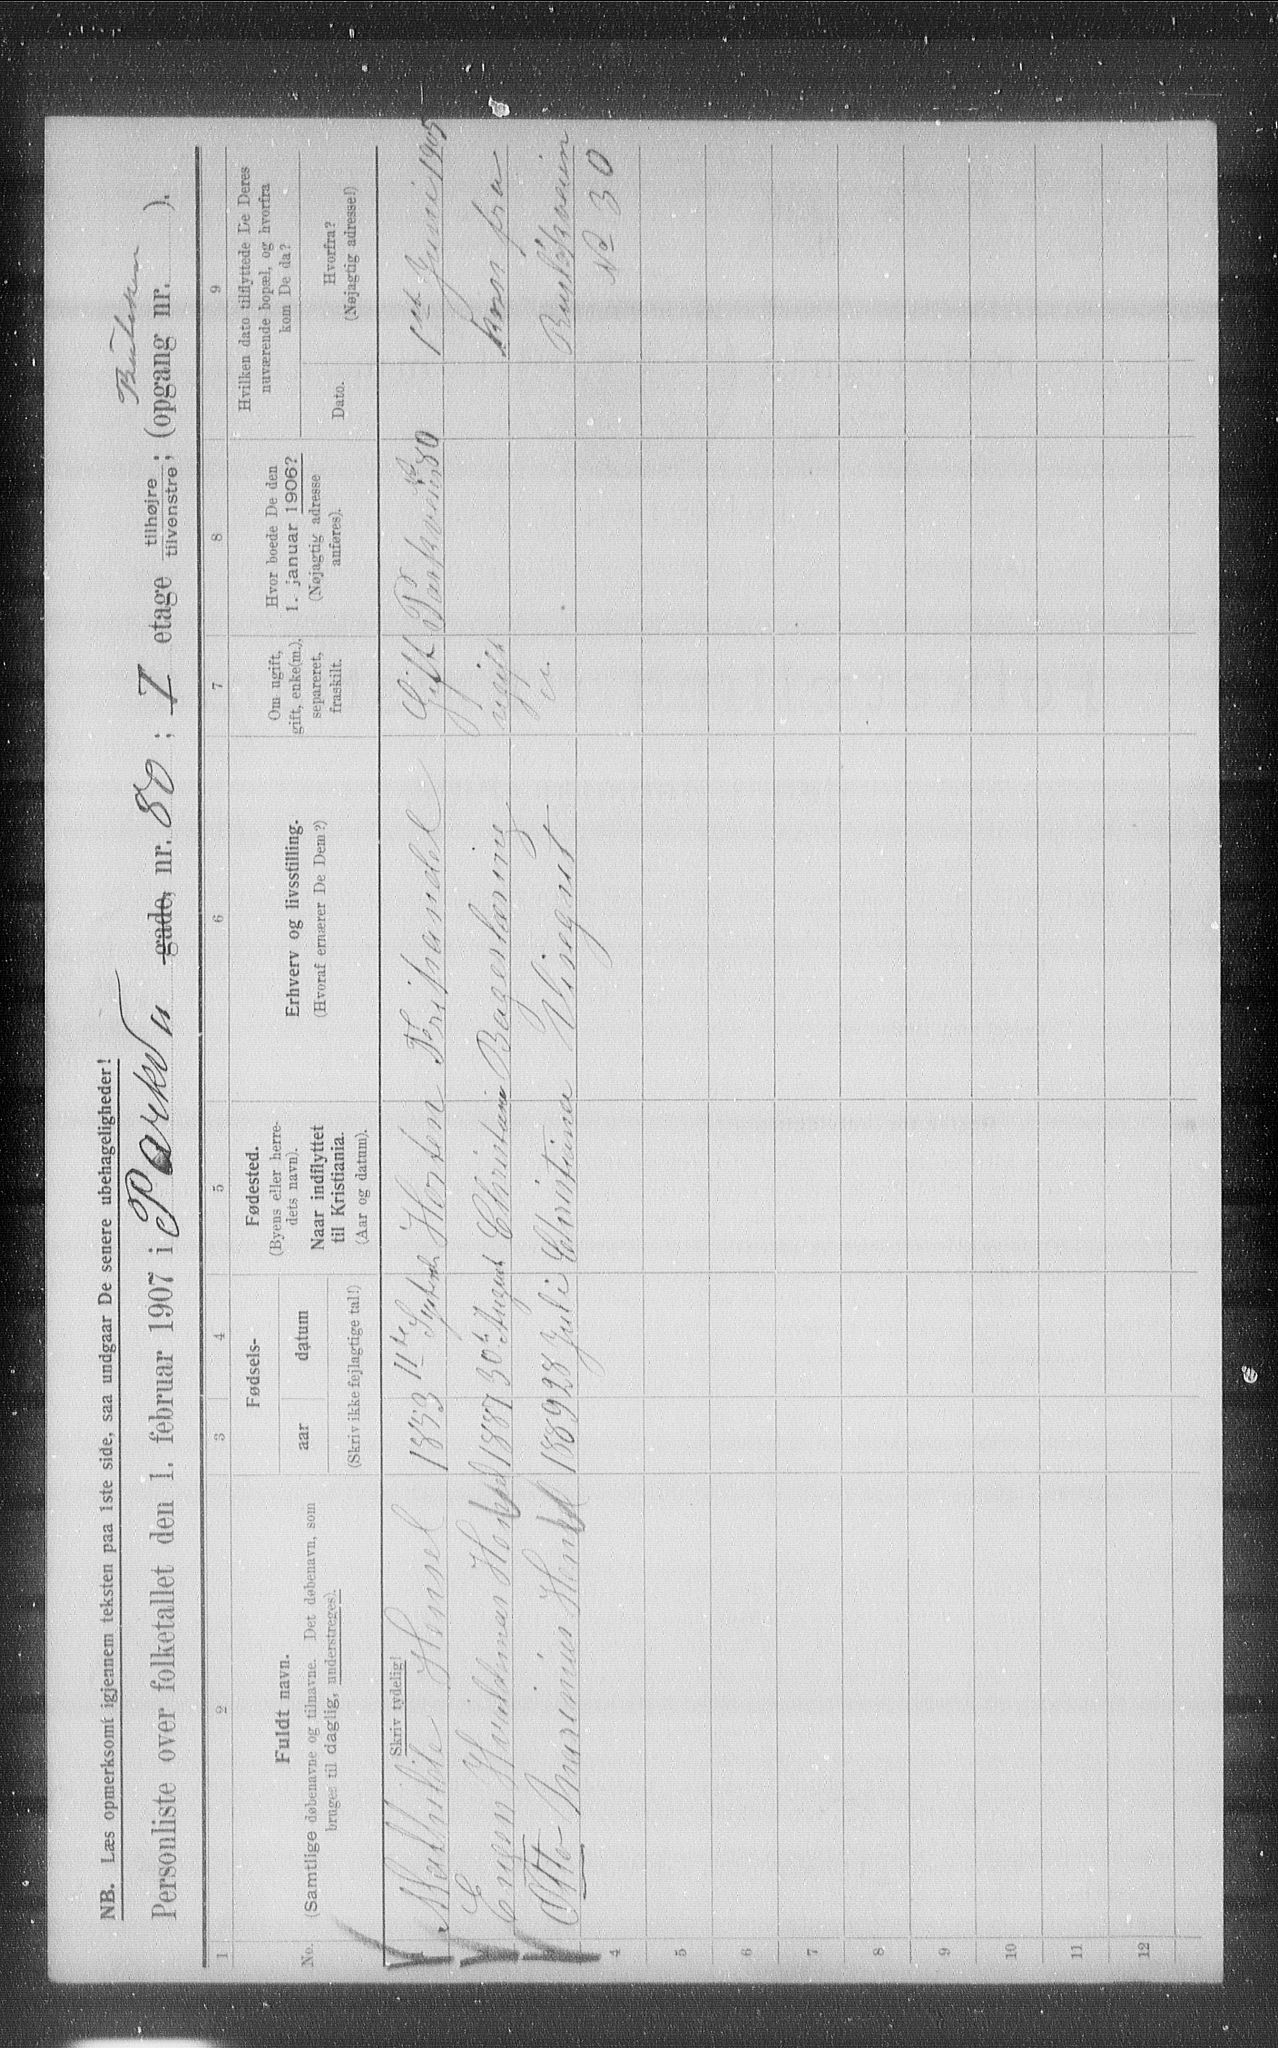 NB. Læs opmerksomt igjennem teksten paa 1ste side, saa undgaar De senere ubehageligheder!
Butiken
Personliste over folketallet den 1. februar 1907 i Parkv gade, nr. 80; I etage tilhøjre / tilvenstre; (opgang nr. ).
1 2 3 4 5 6 7 8 9
No.
Fuldt navn.
(Samtlige døbenavne og tilnavne. Det døbenavn, som
bruges til daglig, understreges).
Fødsels-
aar datum
(Skriv ikke fejlagtige tal!)
Fødested.
(Byens eller herre-
dets navn).
Naar indflyttet
til Kristiania.
(Aar og datum).
Erhverv og livsstilling.
(Hvoraf ernærer De Dem?)
Om ugift,
gift, enke(m.),
separeret,
fraskilt.
Hvor boede De den
1. januar 1906?
(Nøjagtig adresse
anføres).
Hvilken dato tilflyttede De Deres
nuværende bopæl, og hvorfra
kom De da?
Dato.
Hvorfra?
(Nøjagtig adresse!)
Skriv tydelig!
1 Mathilde Hensel 1853 11te Septemb Horten Frihandel Gift Parkveien No 80 1ste Juni 1905
2 Eugen Hensel 1887 30te August Christiania Bageslæring ugift kom fra
3 Otto Hensel 1889 28 Juli Christiania Visegut
No 30
4
5
6
7
8
9
10
11
12